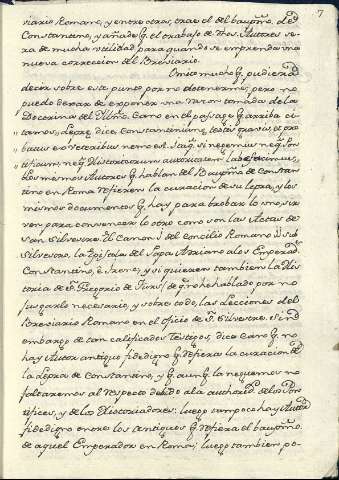 7
viario Romano, y entre otras, trae el del baupmo. de
Constantino, y añade q. el trabajo de dhos. Autores se-
ra de mucha utilidad para quando se emprenda una
nueva correccion del Breviario.
Omito mucho q. pudiera
decir sobre este punto por no detenerme; pero no
puedo dexar de exponer una razon tomada de la
Doctrina del Cano en el pasage q. arriba ci-
tamos; Lepra, dice, Constantinum, testis gravis, et pro-
batus è veteribus nemo est. Sed si negemus neq. Pon-
tificum, neq. Historicorum autoritatem labefacimus.
Los mismos Autores q. hablan del Baupmo. de Constan-
tino en Roma refieren la curacion de su lepra, y los
mismos documentos q. hay para probar lo uno, sir-
ven para convencer lo otro como son las Actas de
San Silvestre. El Canon 1 del Concilio Romano sub
Silvestro, la Epistola del Papa Adriano a los Emperad.
Constantino, è Irene; y si quieren tambien la His-
toria de Sn. Gregorio de Turs de q. no he hablado por no
juzgarlo necesario, y sobre todo, las lecciones del
Breviario Romano en el oficio de S. Silvestre. Sin
embargo de tan calificados Testigos, dice Cano q. no
hay Autor antiguo fidedigno q. refiera la curacion de
la Lepra de Constantino, y q. aunq. la neguemos no
faltaremos al respeto debido a la authoridd. de los Pon-
tifices, y de los Historiadores: luego tampoco hay Autor
fidedigno entre los antiguos q. refiera el baupmo.
de aquel Emperador en Roma; luego tambien po-